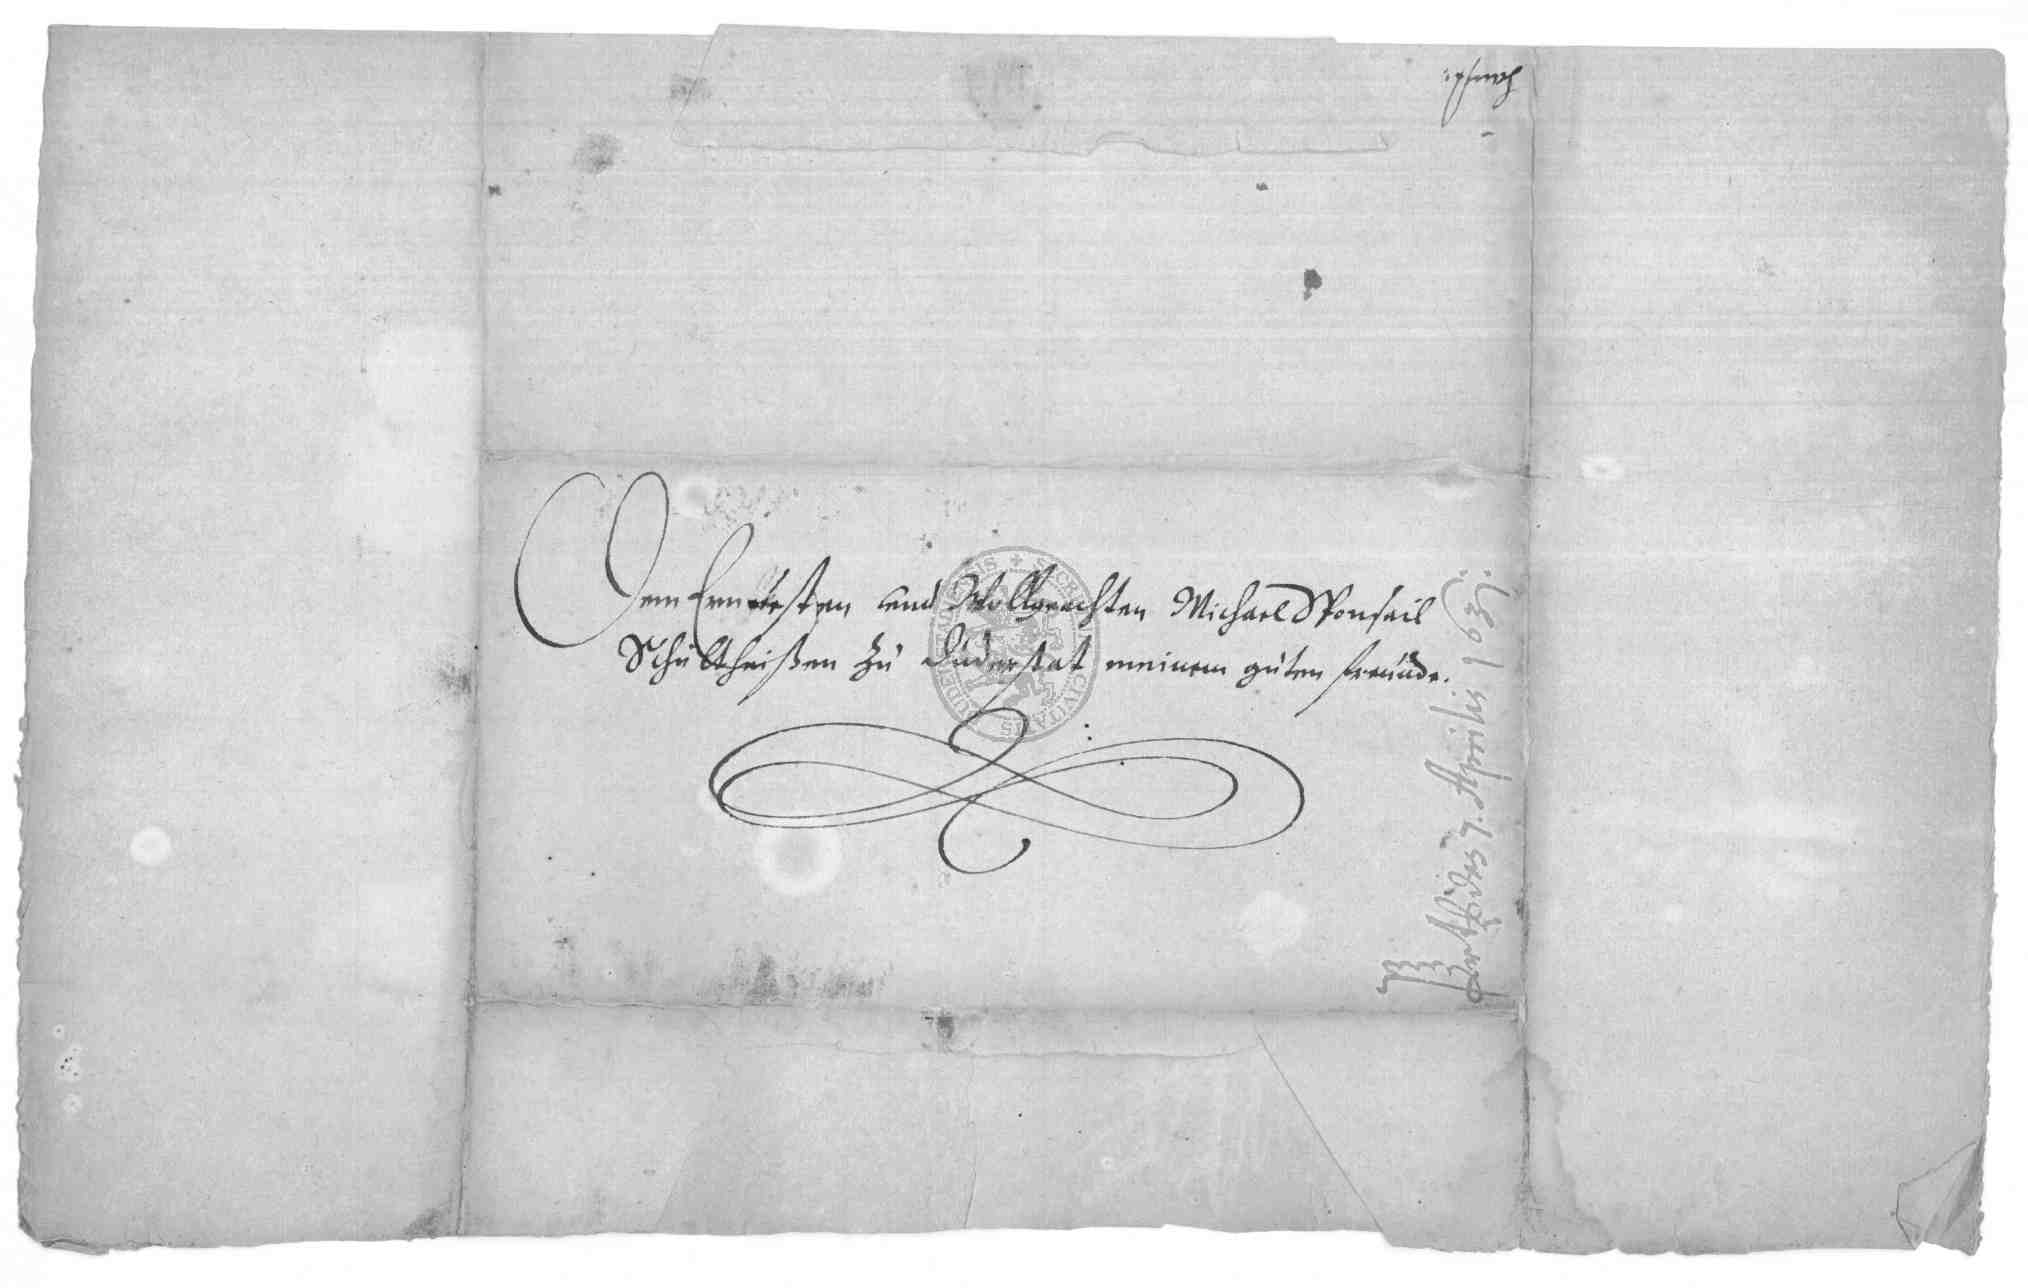 Dem Ernvesten und Wollgeachten Michael Sponsail
Schultheißen zu Duderstat meinem guten freunde.
des 7. Aprilis 1631.